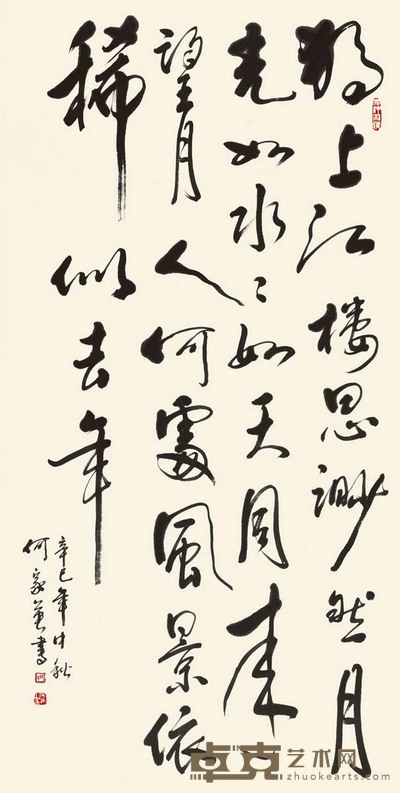 獨上江楼思渺然月
光如水々如天同来
望月人何處風景依
稀似去年
辛巳年中秋
何家書
卓克艺术网
zhuokearts.com